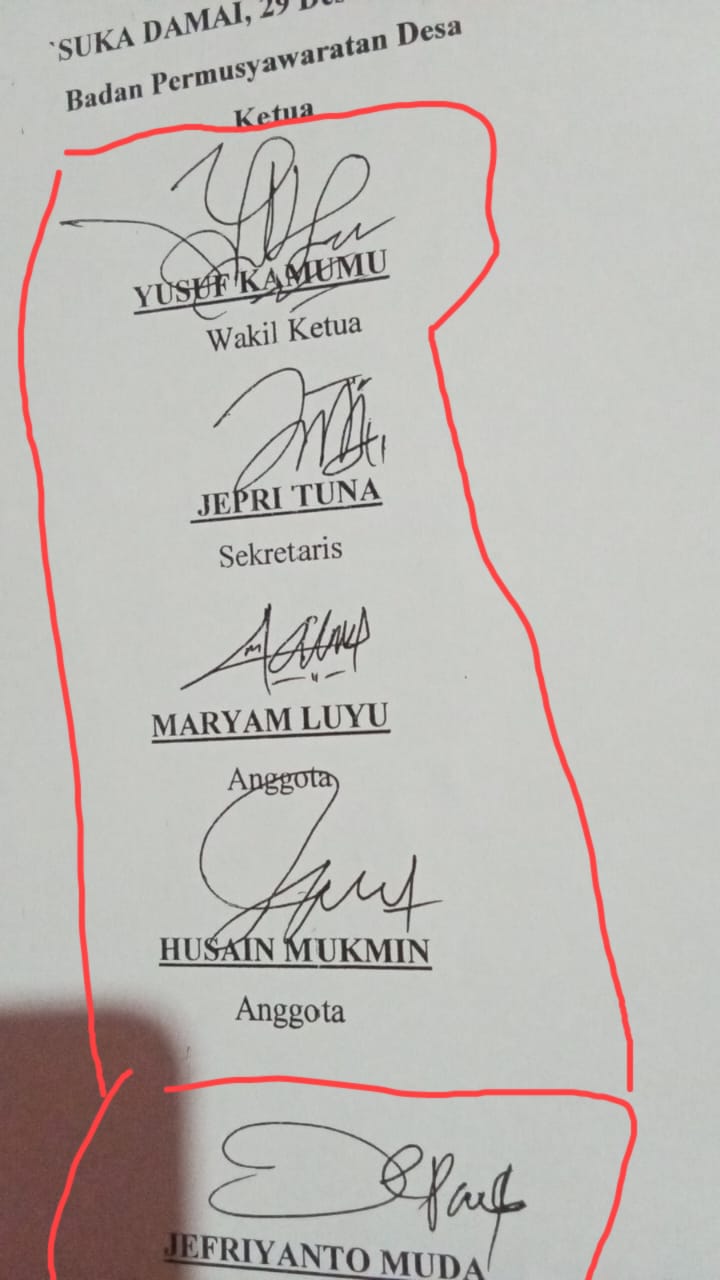 `SUKA DAMAI, 29
Badan Permusyawaratan Desa
Ketua
YUSUF KAMUMU
Wakil Ketua
JEPRI TUNA
Sekretaris
MARYAM LUYU
Anggota
HUSAIN MUKMIN
Anggota
JEFRIYANTO MUDA